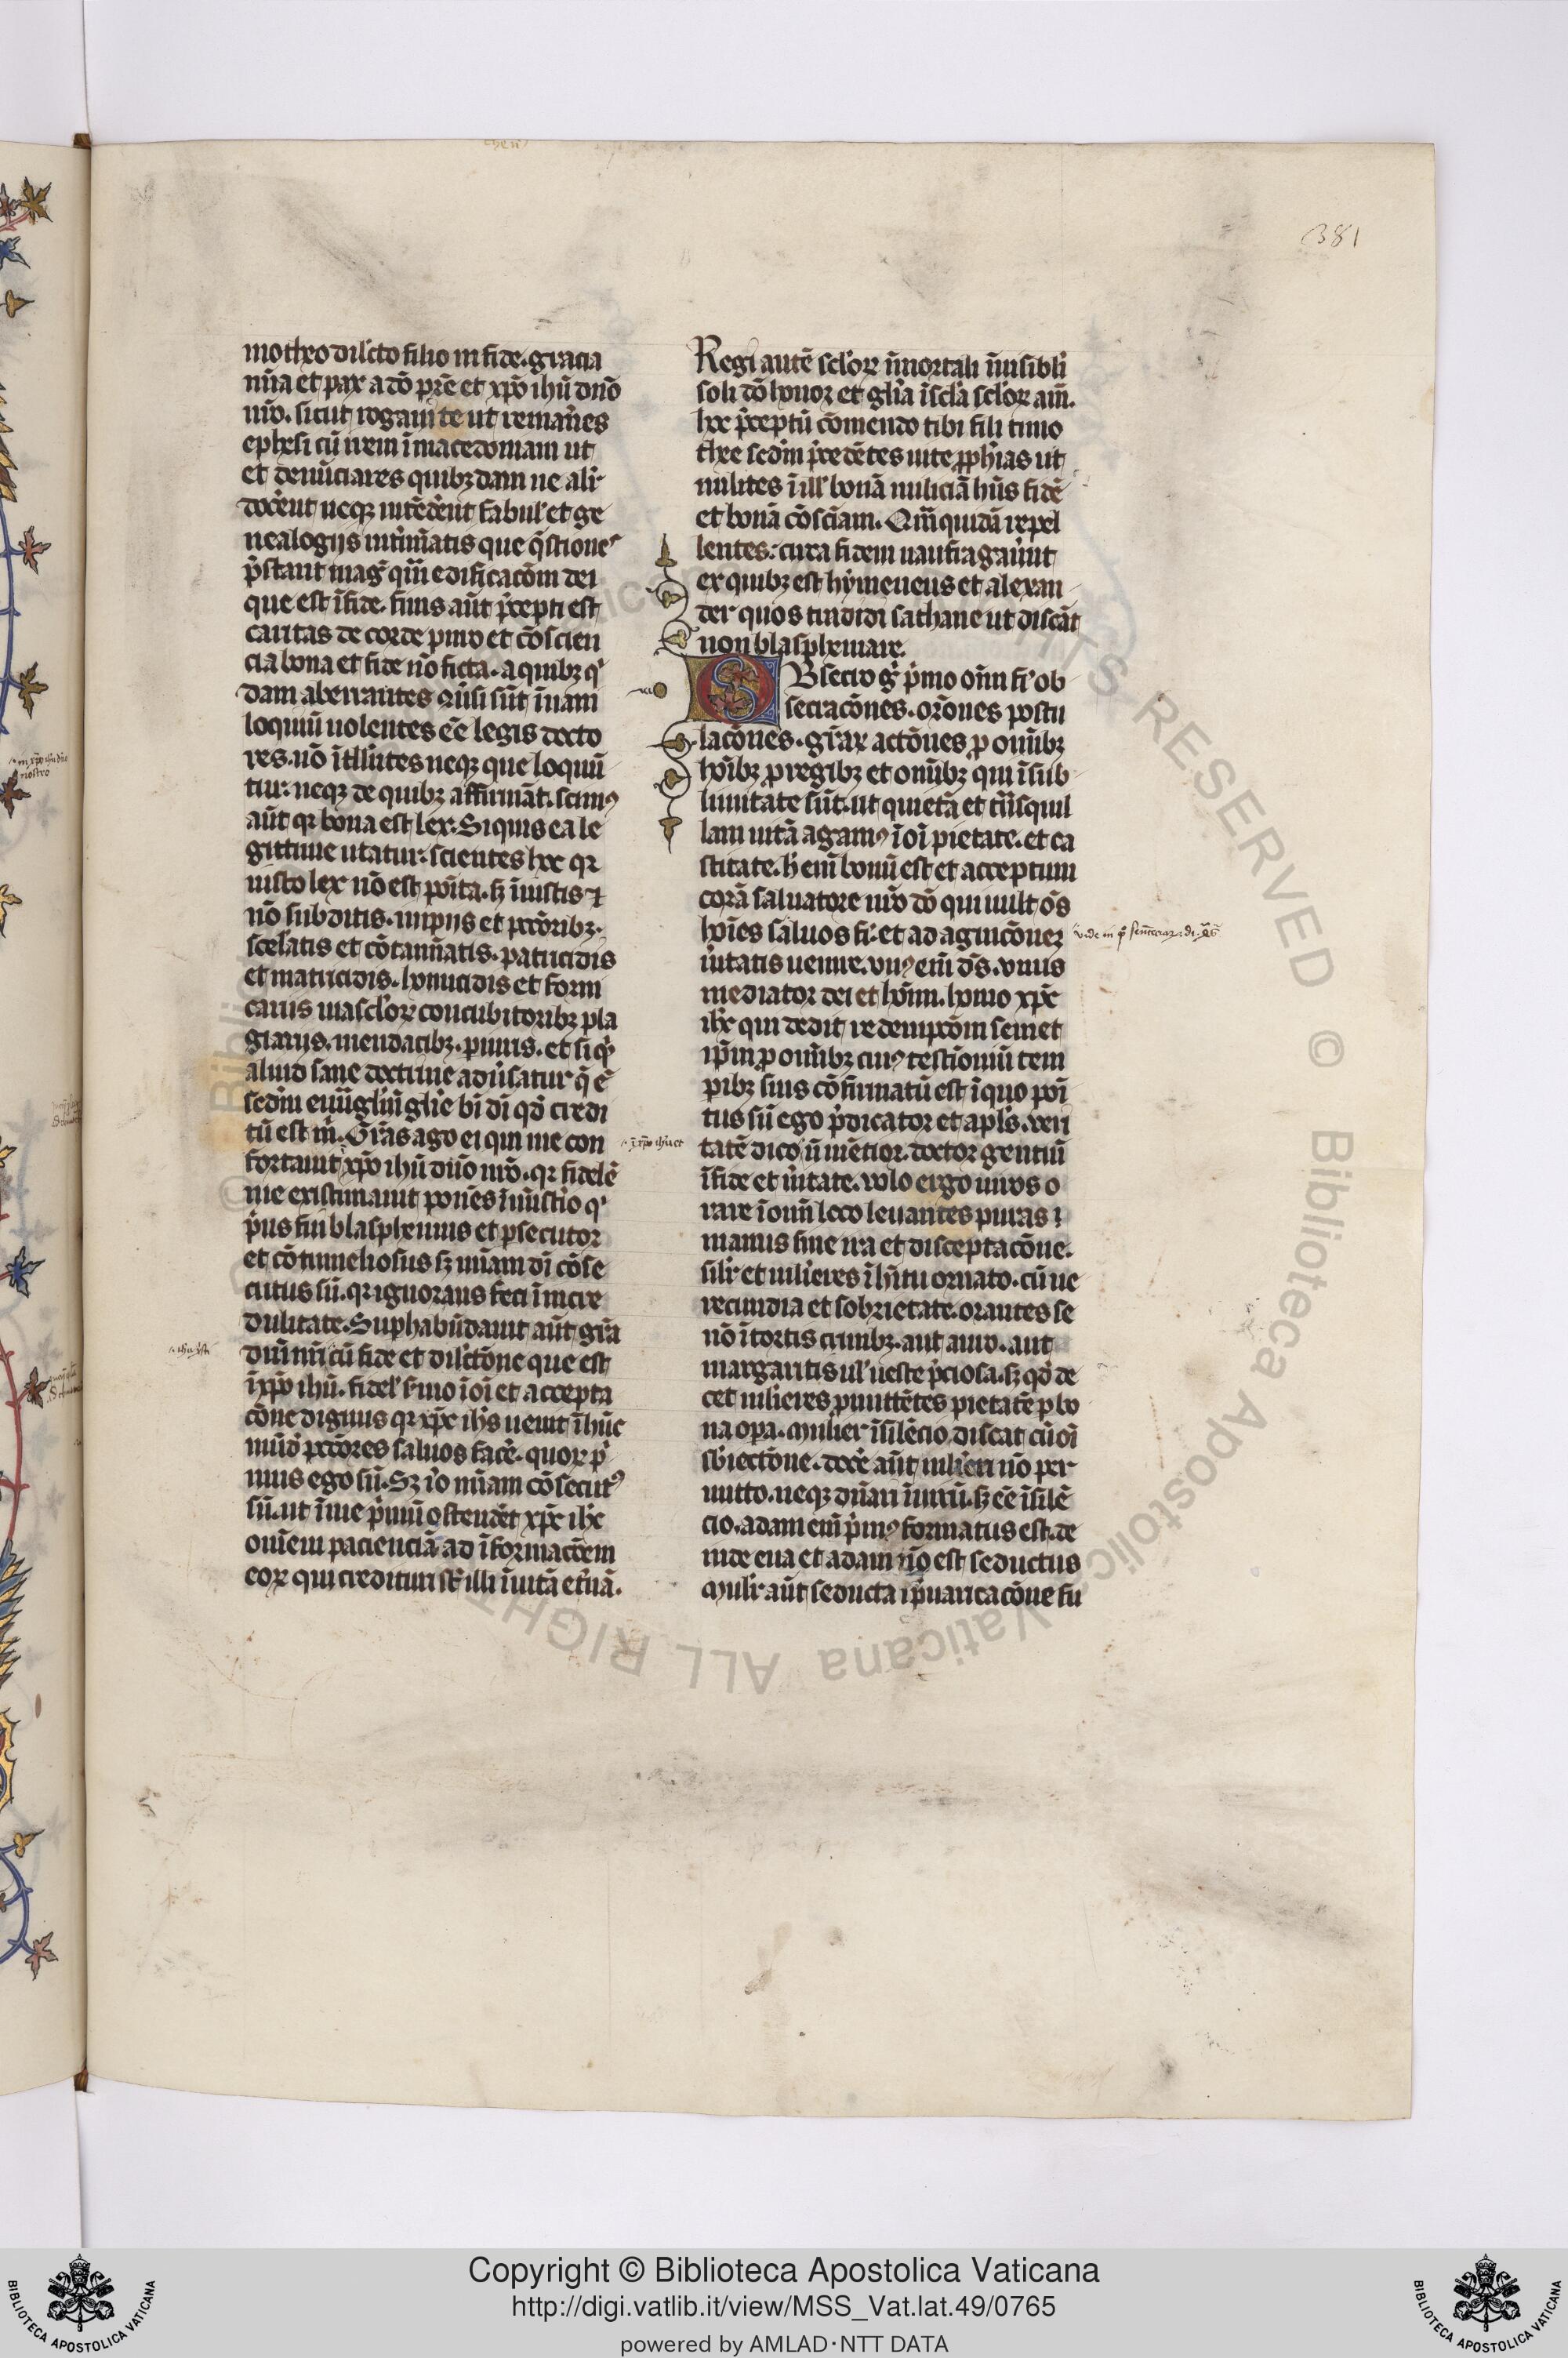 381
motheo dilc̄to filio in fide. gracia
mīa et pax a dō pr̄e et xp̄o ihū dn̄o
nr̄o. sicut rogaui te ut remaneres
ephesi cū irem ī macedoniam ut
et denūciares quibusdam ne alit̄
docerēt neqꝫ intēderēt fabul̓ et ge
nealogijs int̓īatis que q̄stiones
p̄stant mag̓ qm̄ edificacōm dei
que est ī fide. finis aūt p̄cepti est
caritas de corde puro et cōscien
cia bona et fide nō ficta. a quibꝫ q̓
dam aberrantes ꝯuersi sūt ī uani
loquiū uolentes eē legis docto
res. nō ītell̄ntes neqꝫ que loquū
tur: neqꝫ de quibꝫ affirmāt. scimꝰ
aūt qꝛ bona est lex. Siquis ea le
gittime utatur: scientes hec qꝛ
iusto lex nō est poīta. sꝫ īiustis et
nō subditis. impijs et pctōribꝫ.
scel̓atis et cōtamīatis. patricidis
et matricidis. homicidis et forni
carijs masculoꝝ concubitoribꝫ pla
giarijs. mendacibꝫ. piuris. et si q̓
aliud sane doctrine aduersatur q̄ ē
scdm̄ euūgliū gl̄ie bī dī qd̓ credi
tū est m̄. Gr̄as ago ei qui me con
fortauit xp̄o ihū dn̄o nr̄o. qꝛ fidelē
me existimauit ponēs ī mīst̓io q̓
p̓us fui blasphemus et psecutor
et cōtumeliosus sꝫ mīam dī cōse
cutus sū. qꝛ ignorans feci ī incre
dulitate. Suphabūdauit aūt gr̄a
dn̄i nr̄i cū fide et dilc̄tōne que est
ī xp̄o ihū. fidel̓ s̓mo ī oī et accepta
cōne dignus qꝛ xp̄c ih̄s uenit ī hūc
mūdū pctōres saluos face. quoꝝ p̓
mus ego sū. Sꝫ iō mīam cōsecutꝰ
sū. ut ī me p̓mū ostendet xp̄c ih̄c
om̄em pacienciā ad īformacōem
eoꝝ qui credituri st̄ illi ī uitā et̓nā.
Regi autē sc̄loꝝ īmortali īuisibli
soli dō honor et gl̄ia ī sc̄la sc̄loꝝ am̄.
hec p̄ceptū cōmendo tibi fili timo
thee scdm̄ p̄cedētes in te ꝓphias ut
milites ī ill̓ bonā miliciā hn̄s fidē
et bonā cōsciam. Qm̄ quidā repel
lentes: circa fidem naufragauerūt
ex quibꝫ est hymeneus et alexan
der quos tradidi sathane ut discāt
non blasphemare.
Obsecro g̓ p̓mo om̄ fi̓ ob
secracōnes. orōnes postu
lacōnes. gr̄aꝝ actōnes ꝓ omībꝫ
hoībꝫ ꝓ regibꝫ et omībꝫ qui ī sub
limitate sūt. ut quietā et tr̄squil
lam uitā agamꝰ ī oī pietate. et ca
stitate. h̓ em̄ bonū est et acceptum
corā saluatore nr̄o dō qui uult oēs
hoīes saluos fi̓. et ad agnicōnez
ūitatis uenire. vnꝰ em̄ ds̄. vnus
mediator dei et hoīm. homo xp̄c
ih̄c qui dedit redempcōm semet
ip̄m ꝓ omībꝫ cuiꝰ testiōniū tem
pibꝫ suis cōfirmatū est ī quo poī
tus sū ego p̓dicator et apl̄s. veri
tatē dico n̄ mētior. doctor gentiū
ī fide et ūitate. volo ergo uiros o
rare ī om̄ loco leuantes puras
manus sine ira et disceptacōne.
silr̄ et mlieres ī hītu ornato. cū ue
recundia et sobrietate. orantes se
nō ī tortis crinibꝫ. aut auro. aut
margaritis ul̓ ueste p̓ciosa. sꝫ qd̓ de
cet mlieres ꝓmittētes pietatē p bo
na opa. Mulier ī silēcio discat cū oī
sb̄iectōne. doce aūt mlieri nō per
mitto. neqꝫ dn̄ari ī uirū. sꝫ eē ī silē
cio. adam em̄ p̓mꝰ formatus est. de
inde eua et adam nō est seductus
Mulr̄ aūt seducta ī p̄uaricacōne fu
ī xp̄o ihū et
Copyright © Biblioteca Apostolica Vaticana
http://digi.vatlib.it/view/MSS_Vat.lat.49/0765
powered by AMLAD·NTT DATA
BIBLIOTECA APOSTOLICA VATICANA
BIBLIOTECA APOSTOLICA VATICANA